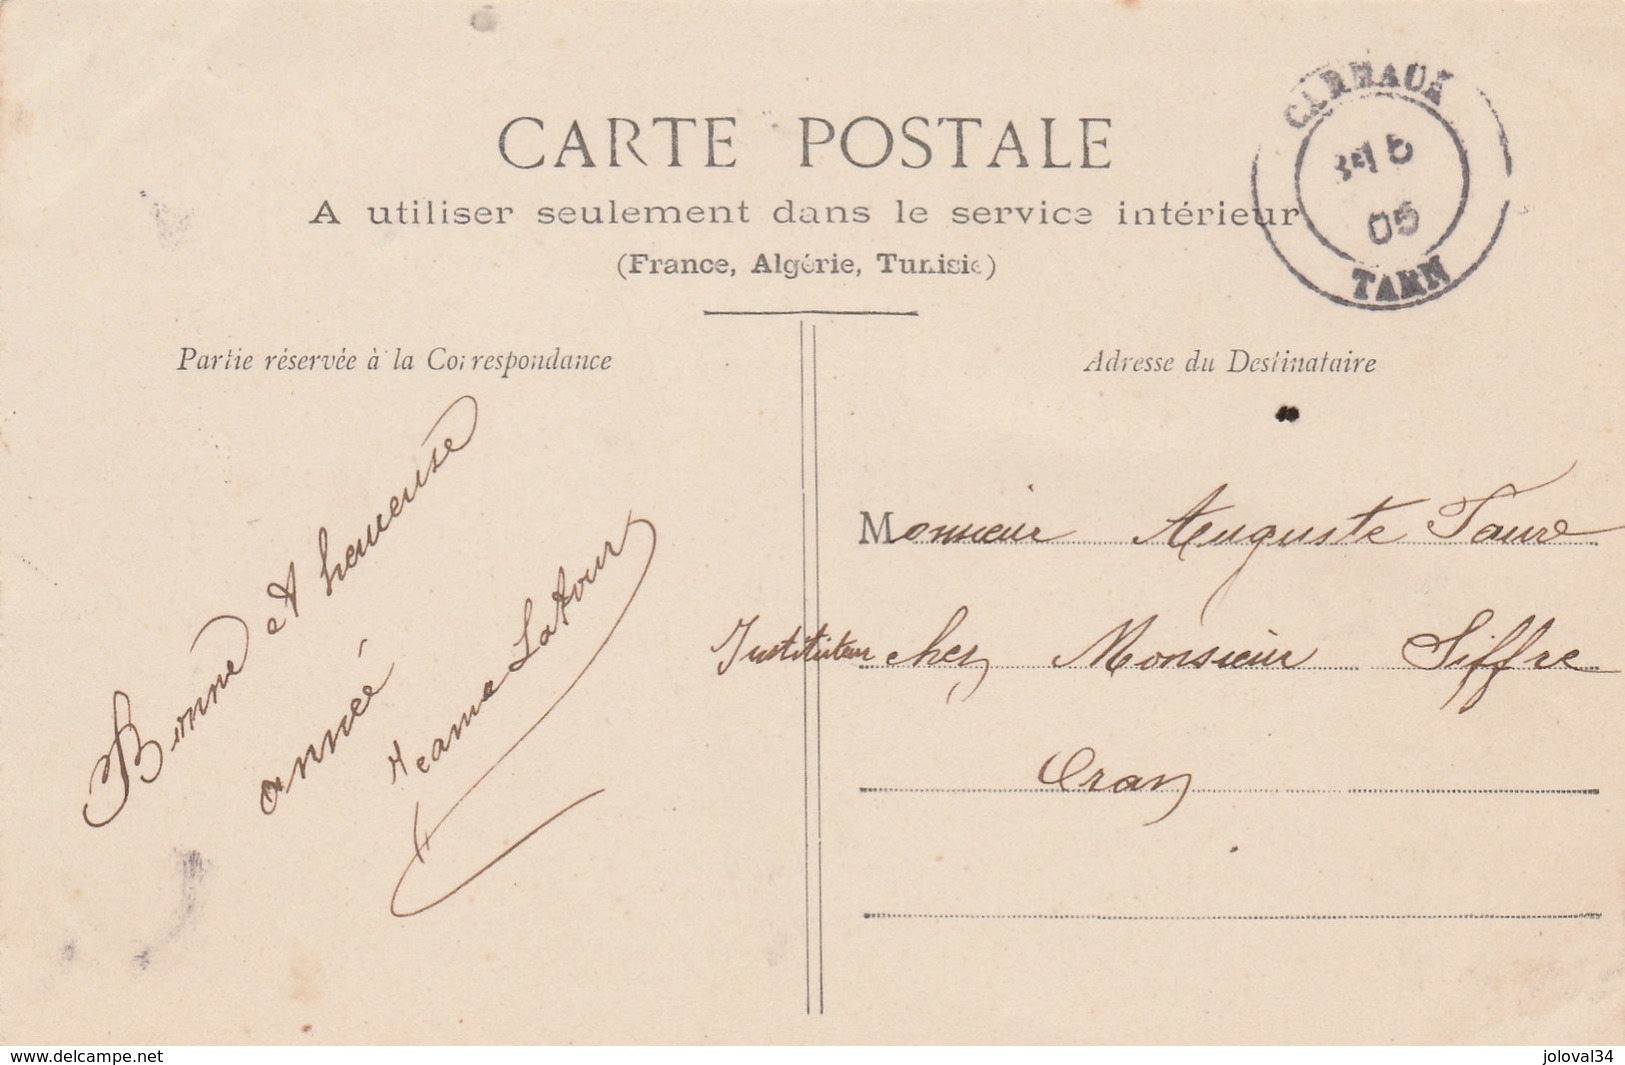 CARTE POSTALE
A utiliser seulement dans le service intérieur
(France, Algérie, Tunisie)
CARMAUX
5
05
TARN
Partie réservée à la Correspondance
Adresse du Destinataire
Bonne et heureuse
année
Jeanne Latour
Monsieur Auguste Faure
Instituteur chez Monsieur Siffre
Oran
www.delcampe.net
joloval34